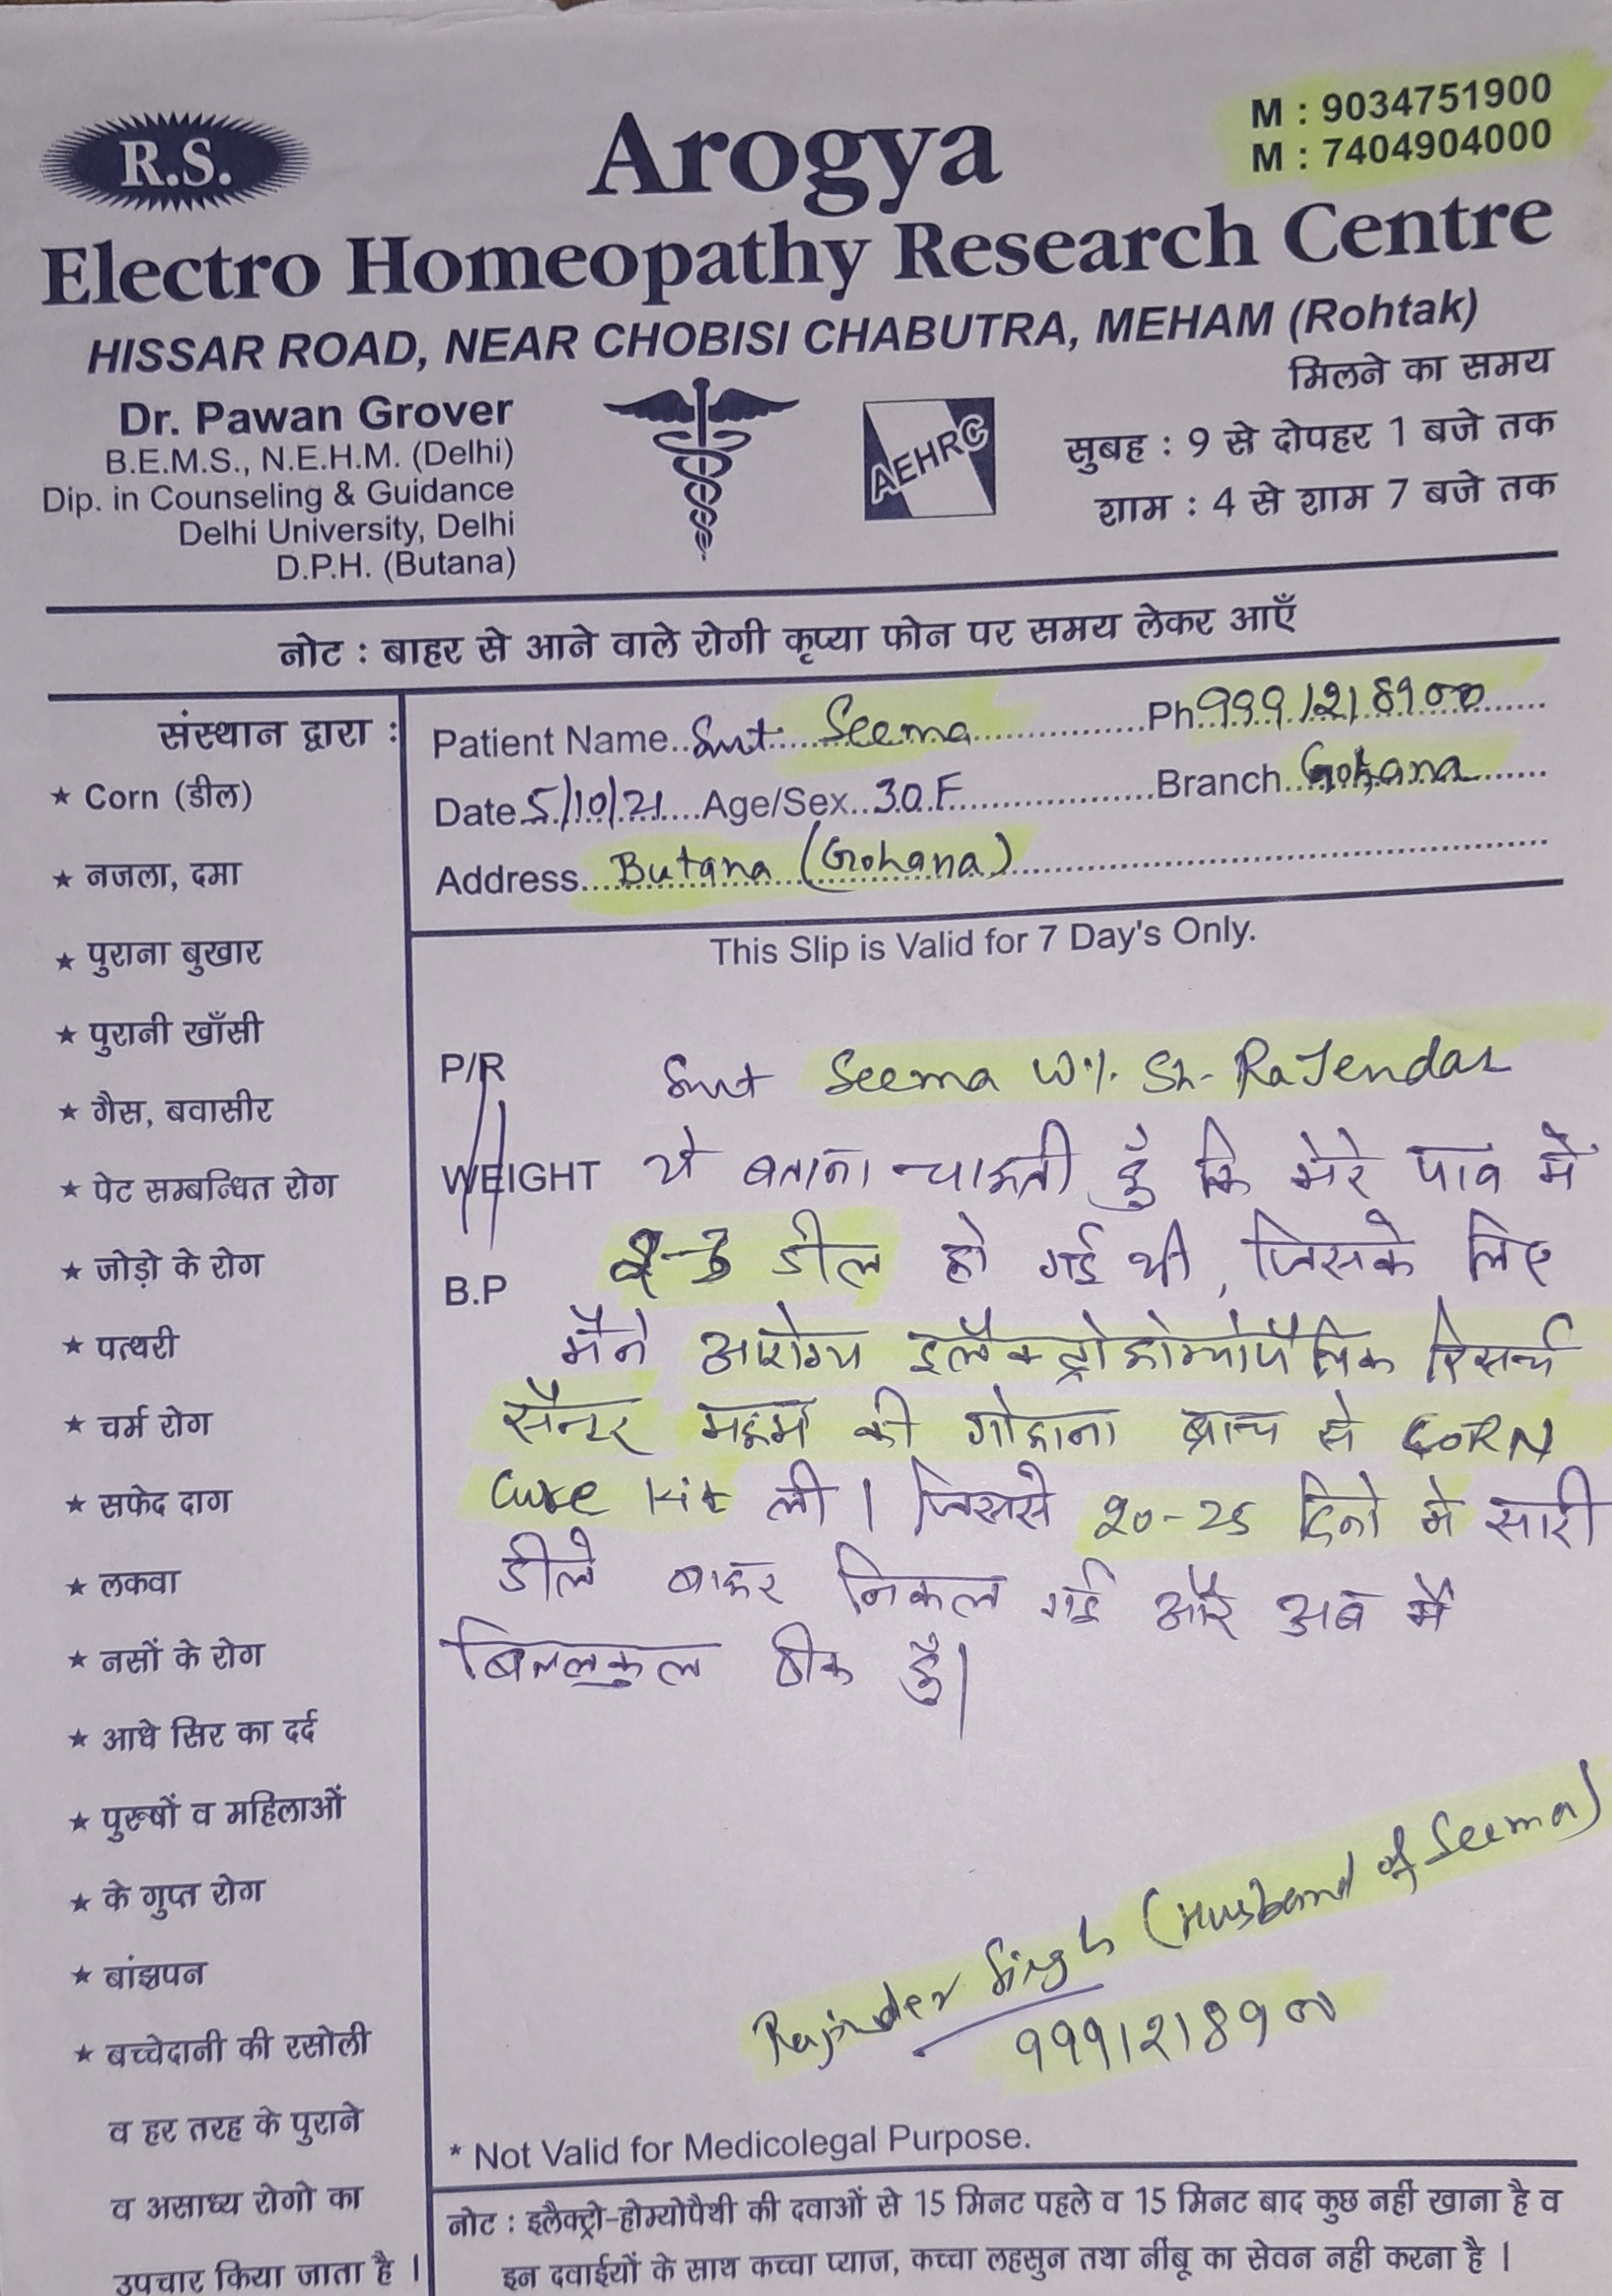 R.S.
M : 9034751900
M : 7404904000
Arogya
Electro Homeopathy Research Centre
HISSAR ROAD, NEAR CHOBISI CHABUTRA, MEHAM (Rohtak)
Dr. Pawan Grover
B.E.M.S., N.E.H.M. (Delhi)
Dip. in Counseling & Guidance
Delhi University, Delhi
D.P.H. (Butana)
AEHRC
मिलने का समय
सुबह : 9 से दोपहर 1 बजे तक
शाम : 4 से शाम 7 बजे तक
नोट : बाहर से आने वाले रोगी कृप्या फोन पर समय लेकर आएँ
संस्थान द्वारा :
★ Corn (डील)
★ नजला, दमा
★ पुराना बुखार
★ पुरानी खाँसी
★ गैस, बवासीर
★ पेट सम्बन्धित रोग
★ जोड़ो के रोग
★ पत्थरी
★ चर्म रोग
★ सफेद दाग
★ लकवा
★ नसों के रोग
★ आधे सिर का दर्द
★ पुरूषों व महिलाओं
★ के गुप्त रोग
★ बांझपन
★ बच्चेदानी की रसोली
व हर तरह के पुराने
व असाध्य रोगो का
उपचार किया जाता है ।
Patient Name Smt Seema Ph 9991218900
Date 5/10/21 Age/Sex 30 F Branch Gohana
Address Butana (Gohana)
This Slip is Valid for 7 Day's Only.
P/R
WEIGHT
B.P
Smt Seema W/. Sh- RaJendar
ये बताना चाहती हूँ कि मेरे पाव में
2-3 डील हो गई थी, जिसके लिए
मैने आरोग्य इलैक्ट्रोहोम्योपैथिक रिसर्च
सैन्टर महम की गोहाना ब्रान्च से CORN
Cure Kit ली । जिससे 20-25 दिनो मे सारी
डीले बाहर निकल गई और अब मैं
बिललकुल ठीक हूँ।
Rajinder Singh (Husband of Seema)
9991218900
* Not Valid for Medicolegal Purpose.
नोट : इलैक्ट्रो-होम्योपैथी की दवाओं से 15 मिनट पहले व 15 मिनट बाद कुछ नहीं खाना है व
इन दवाईयों के साथ कच्चा प्याज, कच्चा लहसुन तथा नींबू का सेवन नही करना है ।